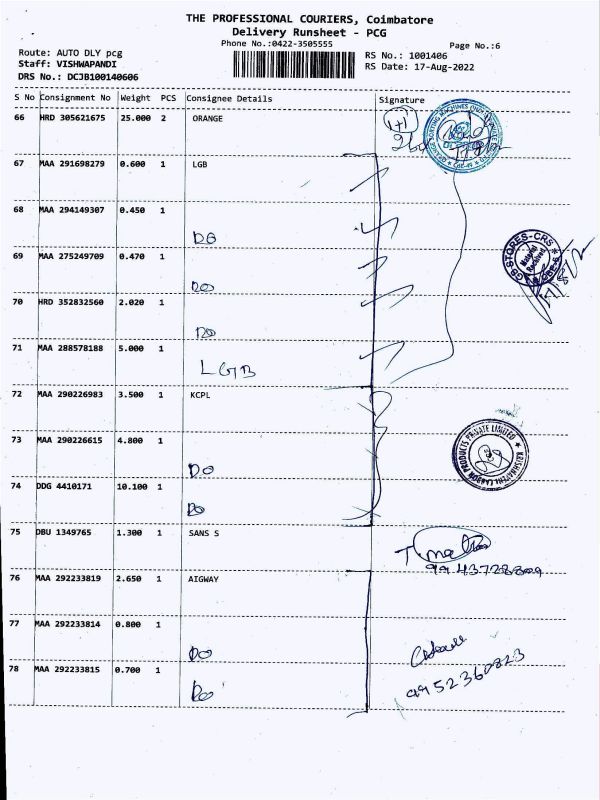 THE PROFESSIONAL COURIERS, Coimbatore
Delivery Runsheet - PCG
Phone No.:0422-3505555
Page No.:6
Route: AUTO DLY pcg
Staff: VISHWAPANDI
DRS No.: DCJB100140606
RS No.: 1001406
RS Date: 17-Aug-2022
S No Consignment No Weight PCS Consignee Details Signature
66 HRD 305621675 25.000 2 ORANGE
1+1
67 MAA 291698279 0.600 1 LGB
68 MAA 294149307 0.450 1
DO
69 MAA 275249709 0.470 1
DO
70 HRD 352832560 2.020 1
DO
71 MAA 288578188 5.000 1
LGB
GB STORES-CRS
Material Received
72 MAA 290226983 3.500 1 KCPL
73 MAA 290226615 4.800 1
DO
PRODUCTS PRIVATE LIMITED
74 DDG 4410171 10.100 1
DO
75 DBU 1349765 1.300 1 SANS S
76 MAA 292233819 2.650 1 AIGWAY
77 MAA 292233814 0.800 1
DO
78 MAA 292233815 0.700 1
DO
9952360823